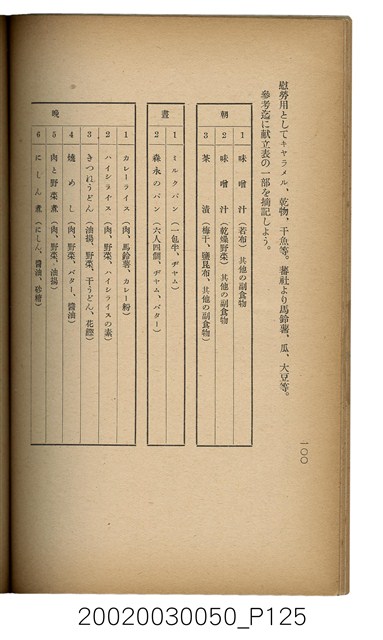 慰勞用としてキャラメル、乾物、干魚等。蕃社より馬鈴薯、瓜、大豆等。
參考迄に献立表の一部を摘記しよう。
朝
1 味噌汁(若布) 其他の副食物
2 味噌汁(乾燥野菜) 其他の副食物
3 茶漬(梅干、鹽昆布 其他の副食物)
晝
1 ミルクパン(一包半、ヂャム)
2 森永のパン(六人四個、ヂャム、バター)
晩
1 カレーライス(肉、馬鈴薯、カレー粉)
2 ハイシライス(肉、野菜、ハイシライスの素)
3 きつねうどん(油揚、野菜、干うどん、花鰹)
4 燒めし(肉、野菜、バター、醬油)
5 肉と野菜煮(肉、野菜、油揚)
6 にしん煮(にしん、醬油、砂糖)
一〇〇
20020030050_P125